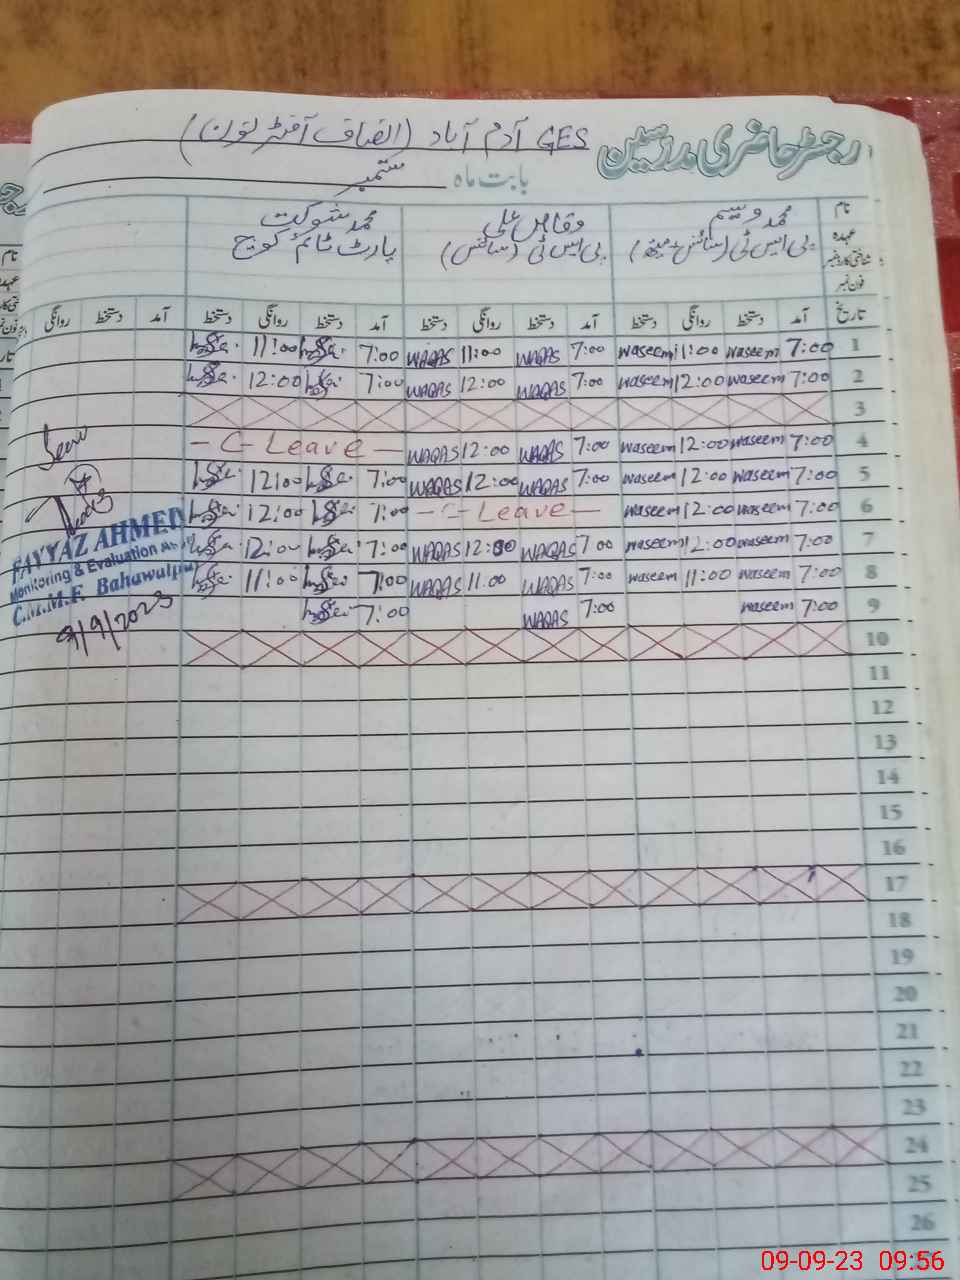 رجسٹر حاضری مدرسین GES آدم آباد (انصاف آفٹر نون)
بابت ماہ ستمبر
نام محمد وسیم وقاص علی محمد شوکت
عہدہ پی ایس ٹی (سائنس - میتھ) پی ایس ٹی (سائنس) پارٹ ٹائم کوچ
شناختی کارڈ نمبر
فون نمبر
تاریخ آمد دستخط روانگی دستخط آمد دستخط روانگی دستخط آمد دستخط روانگی دستخط آمد دستخط روانگی
1 7:00 waseem 11:00 waseem 7:00 WAQAS 11:00 WAQAS 7:00 11:00
2 7:00 waseem 12:00 waseem 7:00 WAQAS 12:00 WAQAS 7:00 12:00
3
4 7:00 waseem 12:00 waseem 7:00 WAQAS 12:00 WAQAS - C - Leave -
5 7:00 waseem 12:00 waseem 7:00 WAQAS 12:00 WAQAS 7:00 12:00
6 7:00 waseem 12:00 waseem - C - Leave - 7:00 12:00
7 7:00 waseem 12:00 waseem 7 00 WAQAS 12:00 WAQAS 7:00 12:00
8 7:00 waseem 11:00 waseem 7:00 WAQAS 11:00 WAQAS 7:00 11:00
9 7:00 waseem 7:00 WAQAS 7:00
10
11
12
13
14
15
16
17
18
19
20
21
22
23
24
25
26
Seen
FAYYAZ AHMED
Monitoring & Evaluation
C.M.M.F. Bahawalpur
9/9/2023
09-09-23 09:56